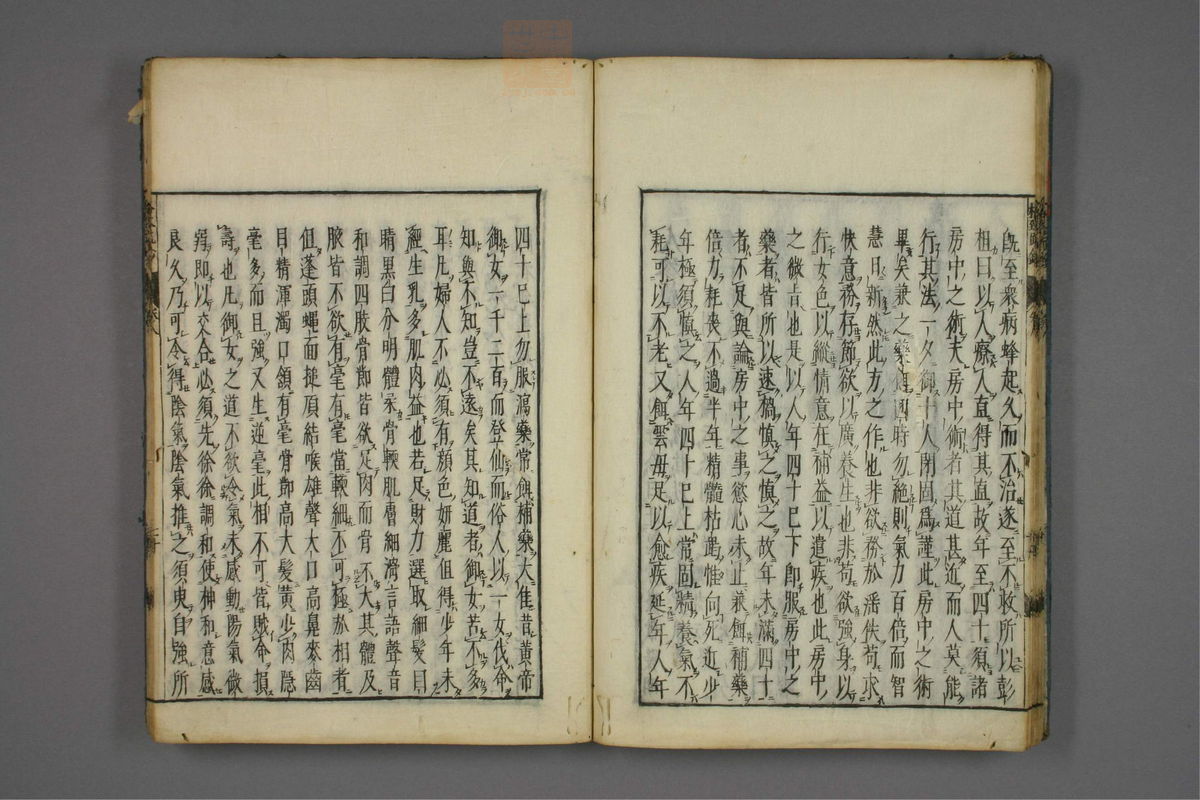 既至衆病蜂起久而不治遂至不救所以彭
祖曰以人療人真得其真故年至四十須諸
房中之術夫房中術者其道甚近而人莫能
行其法一夕御十人閉固爲謹此房中之術
畢矣兼之藥餌四時勿絶則氣力百倍而智
慧日新然此方之作也非欲務於淫佚苟求
快意務存節欲以廣養生也非苟欲強身以
行女色以縱情意在補益以遣疾也此房中
之微旨也是以人年四十已下即服房中之
藥者皆所以速禍愼之愼之故年未滿四十
者不足與論房中之事慾心未止兼餌補藥
倍力耗喪不過半年精髓枯竭惟向死近少
年極須愼之人年四十已上常固精養氣不
耗可以不老又餌雲母足以愈疾延年人年
四十已上勿服瀉藥常餌補藥大佳昔黄帝
御女一千二百而登仙而俗人以一女伐命
知與不知豈不遠矣其知道者御女苦不多
耳凡婦人不必須有顔色姸麗但得少年未
經生乳多肌肉益也若足財力選取細髮目
睛黒白分明體柔骨軟肌膚細滑言語聲音
和調四肢骨節皆欲足肉而骨不大其體及
腋皆不欲有毫有毫當軟細不可極於相者
但蓬頭蠅面搥項結喉雄聲大口高鼻麥齒
目精渾濁口頷有毫骨節髙大髮黄少肉隱
毫多而且強又生逆毫此相不可皆賊命損
壽也凡御女之道不欲令氣未感動陽氣微
弱即以交合必須先徐徐調和使神和意感
良久乃可令得陰氣陰氣推之須臾自強所